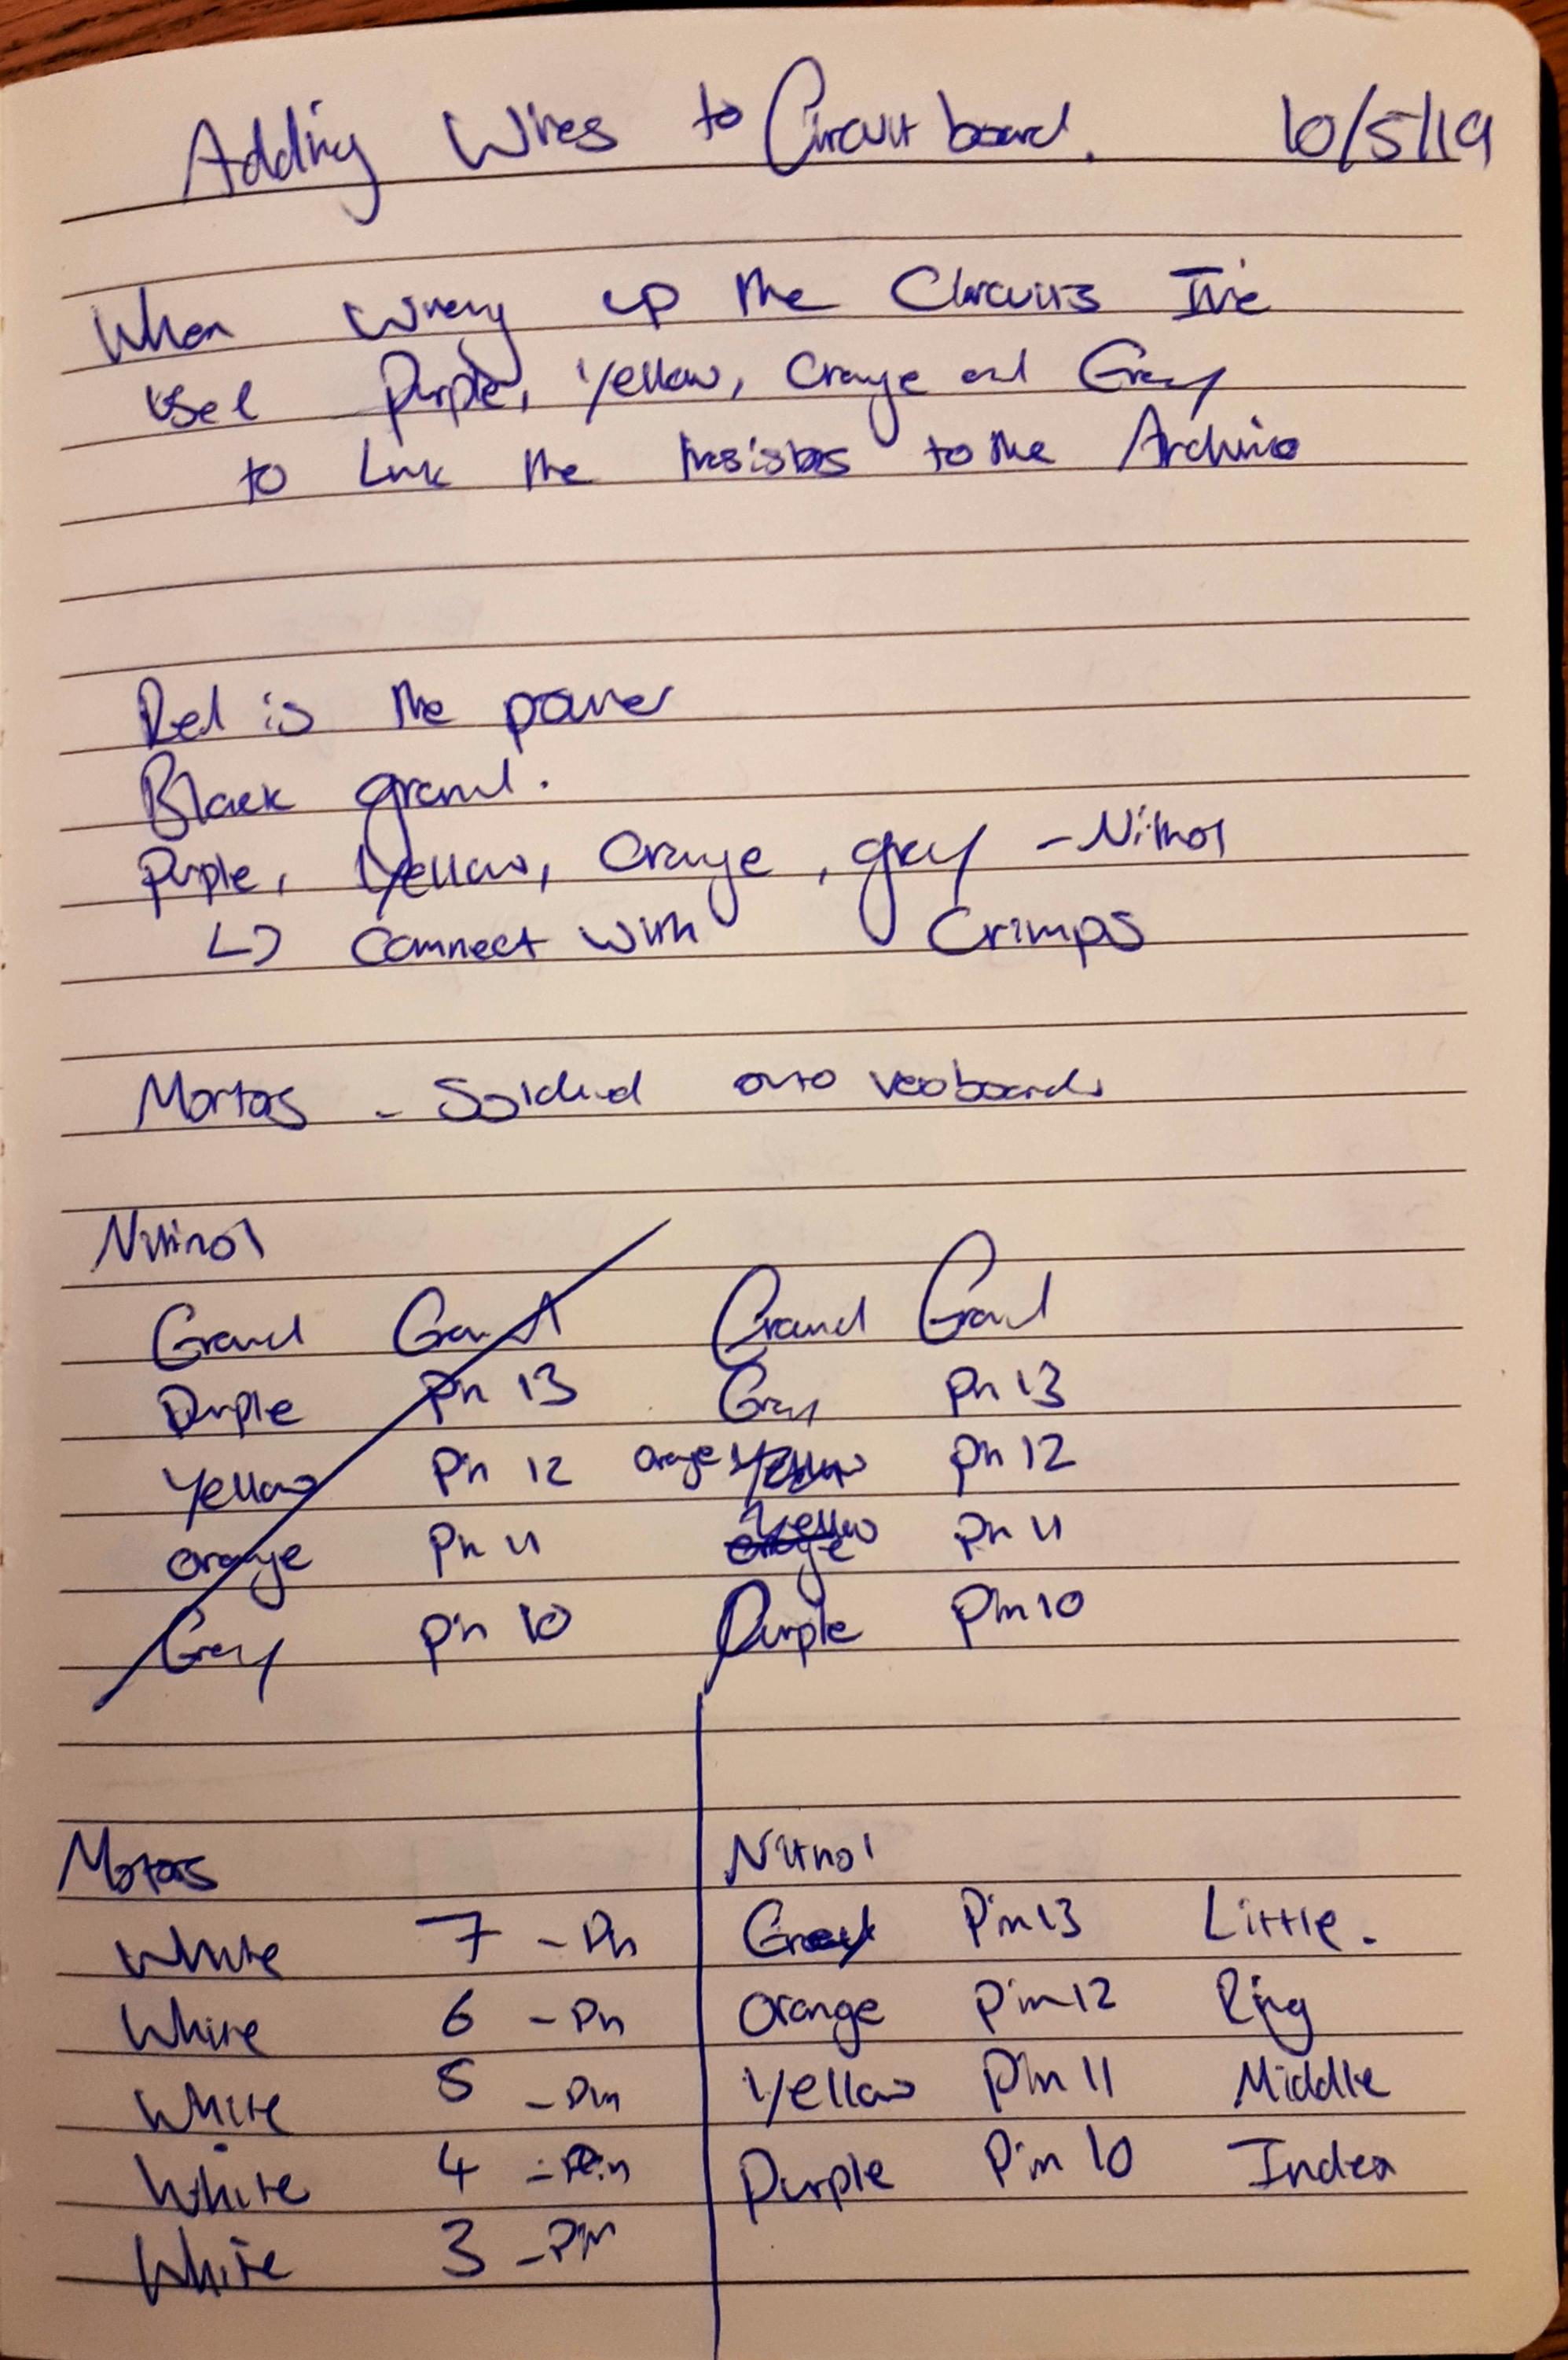 Adding Wires to Circuit board. 10/5/19
When wiring up the Circuits I've
Used Purple, Yellow, Orange and Grey
to Link the to the Arduino
Red is the power
Black ground.
Purple, Yellow, Orange, grey - Nitinol
↳ Connect with Crimps
Mortors - Soldered onto veroboards
Nitinol
Ground Ground Ground Ground
Purple Pin 13 Grey Pin 13
Yellow Pin 12 Orange Yellow Pin 12
Orange Pin 11 Yellow Orange Pin 11
Grey Pin 10 Purple Pin 10
Motors Nitinol
White 7 - Pin Grey Pin 13 Little.
White 6 - Pin Orange Pin 12 Ring
White 5 - Pin Yellow Pin 11 Middle
White 4 - Pin Purple Pin 10 Index
White 3 - Pin